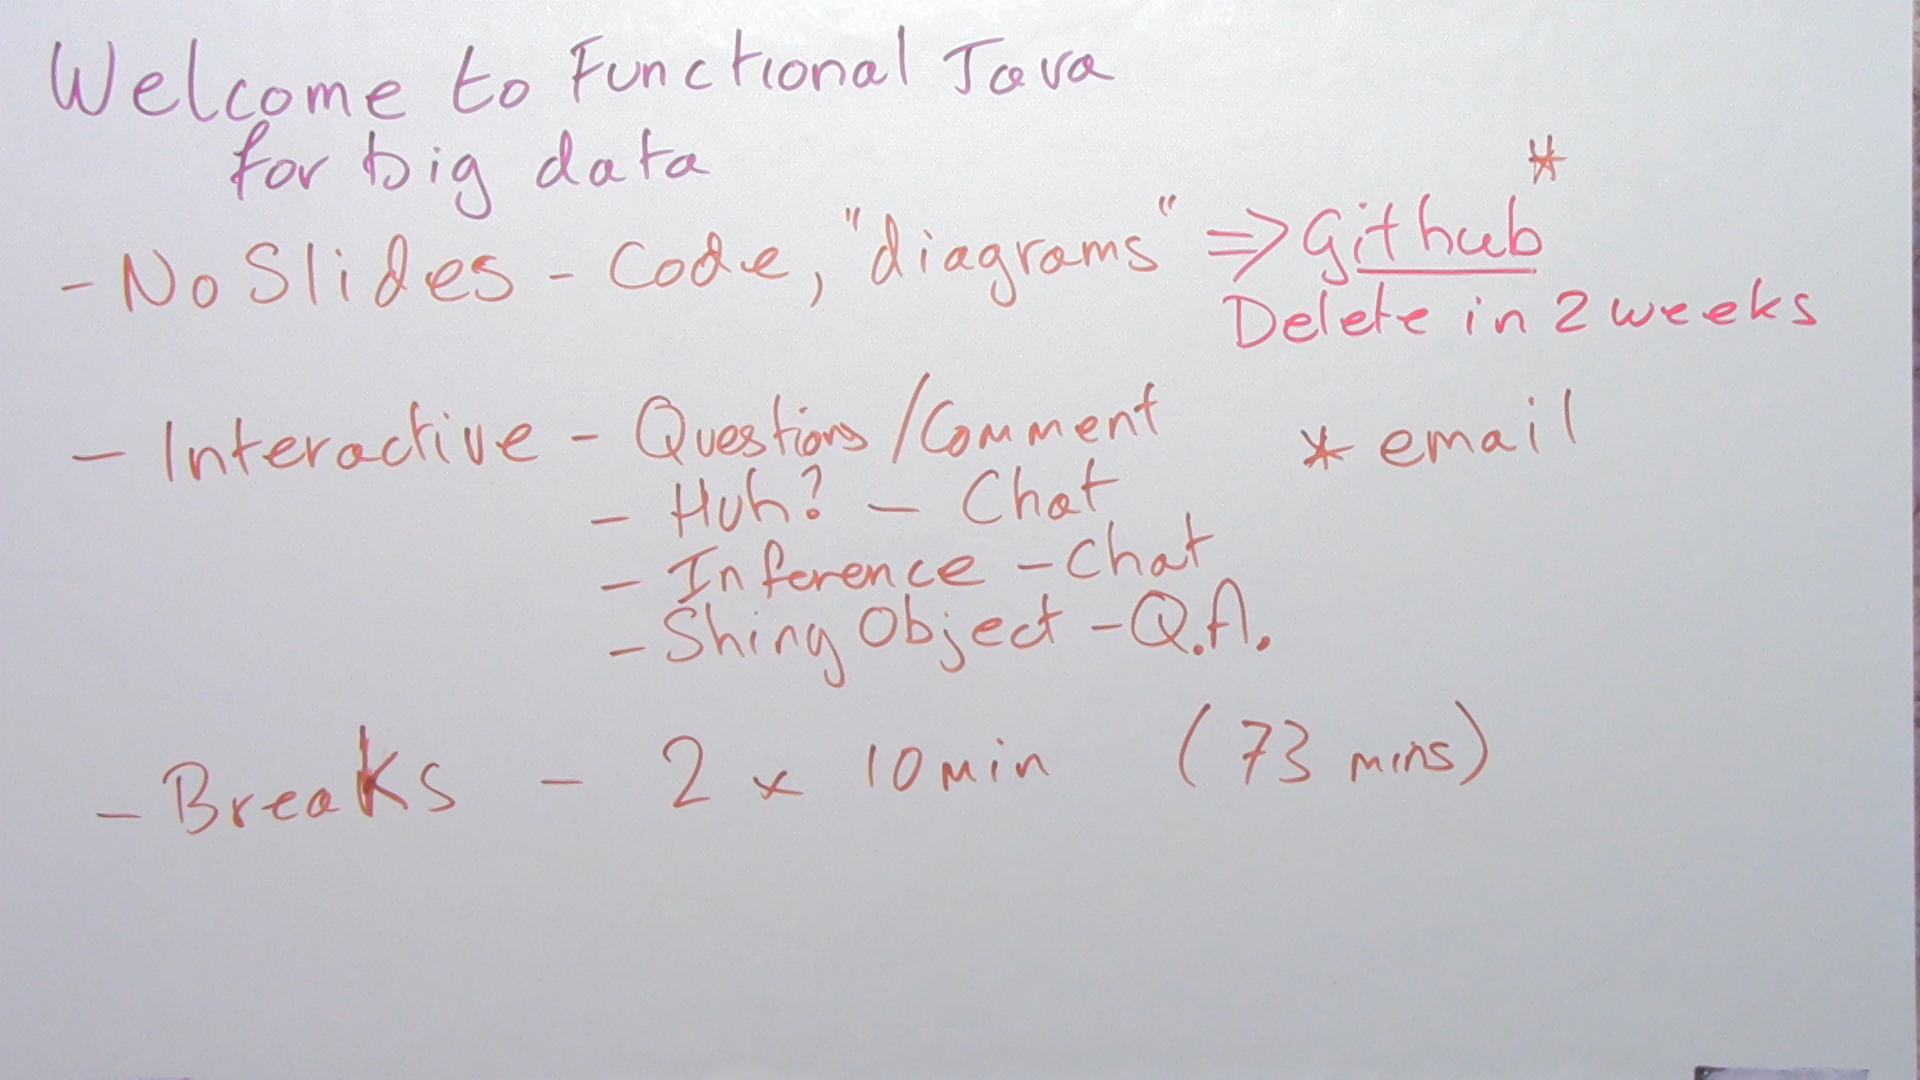 Welcome to Functional Java
for big data
*
- No Slides - Code, "diagrams" => Github
Delete in 2 weeks
- Interactive - Questions/Comment
* email
- Huh? - Chat
- Inference - Chat
- Shing Object - Q.A.
- Breaks - 2 x 10 min (73 mins)